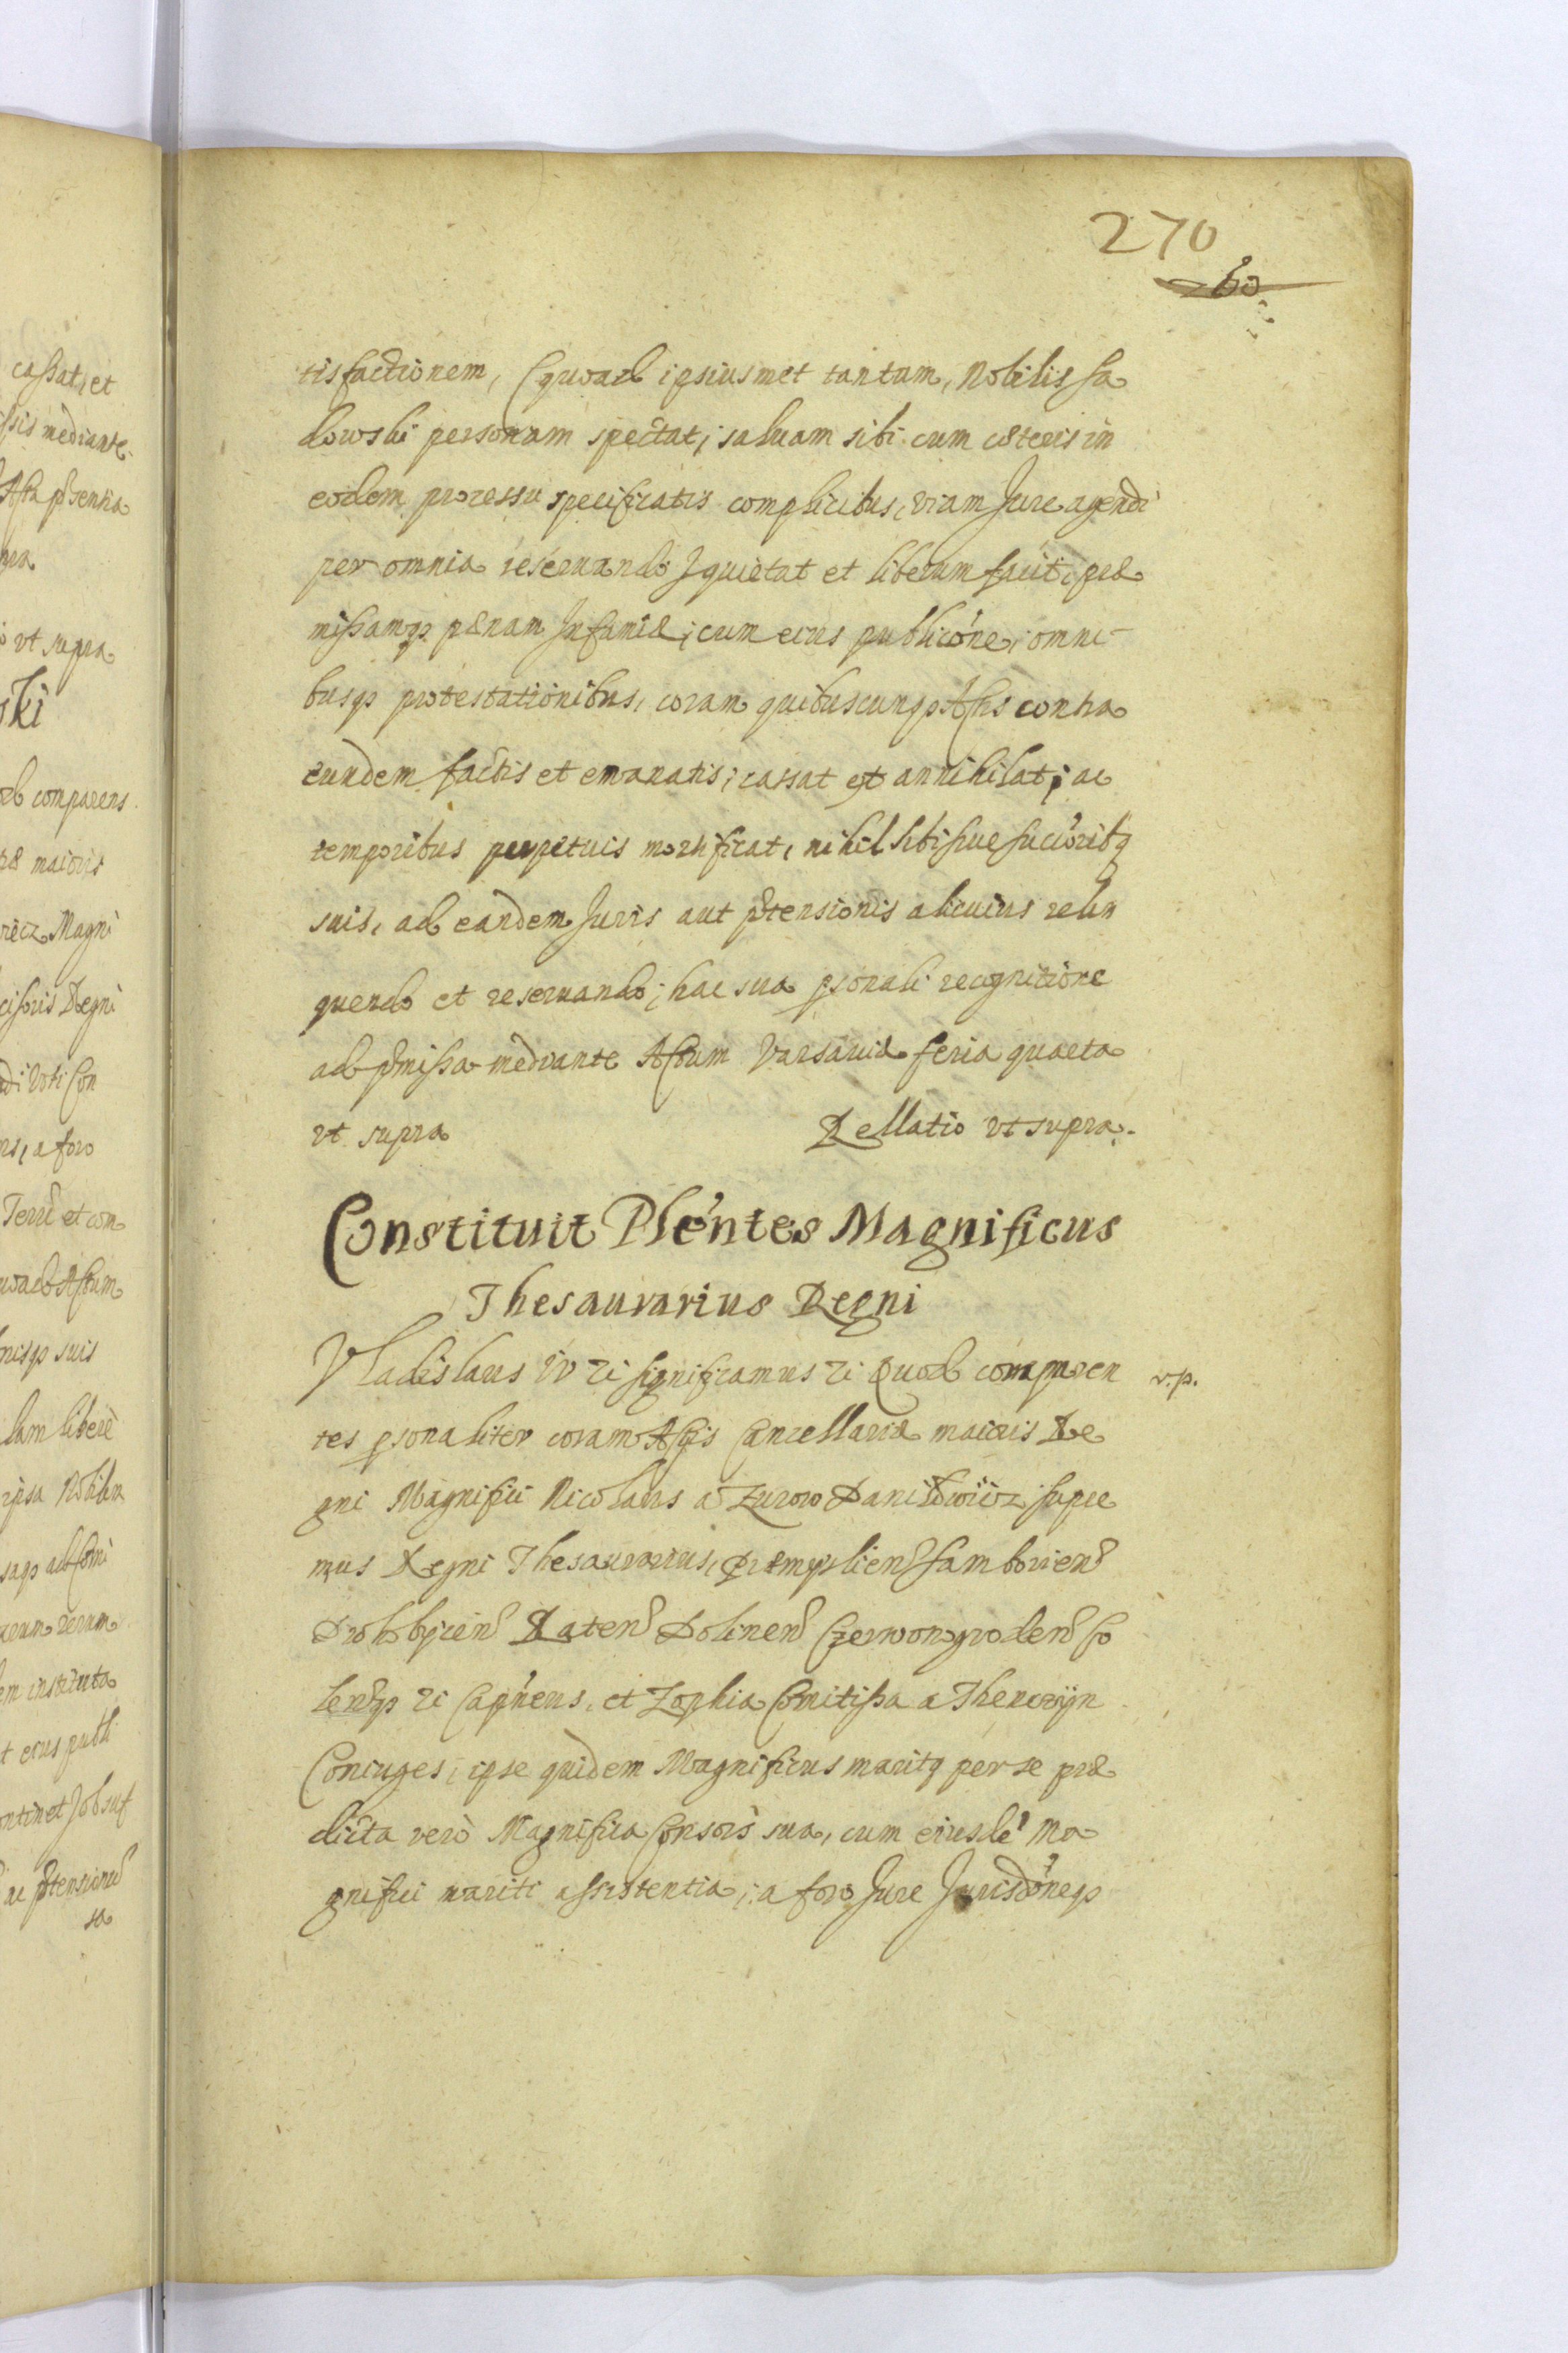 270
60
tisfactionem, (quoad ipsiusmet tantum, Nobilis Sa
dowski personam spectat; saluam sibi cum cæteris in
eodem processu specificatis complicibus, viam Jure agendi
per omnia reseruando) quietat et liberum facit, præ
missamqȝ pænam Infamiæ; cum eius publicõne, omni-
busqȝ protestationibus, coram quibuscunqȝ Actis contra
eundem factis et emanatis; cassat et annihilat; ac
temporibus perpetuis mortificat, nihil sibi siue succõribq
suis, ad eandem Juris aut prætensionis alicuius relin
quendo et reseruando; hac sua psonali recognitione
ad præmissa mediante Actum Varsauiæ feria quarta
vt supra Rellatio vt supra.
Constituit Plẽntes Magnificus
Thesaurarius Regni
Vladislaus IV ꝛc significamus ꝛc Quod comparen v.p.
tes psonaliter coram Actis Cancellariæ maioris Re
gni Magnifici Nicolaus a Zurow Daniłłowicz supre
mus Regni Thesaurarius, Præmyslien Samborien
Drohobycien Raten Dolinen Czerwonogroden So
lenqȝ ꝛc Capñeus, et Zophia Comitissa a Thenczyn
Coniuges; ipse quidem Magnificus maritq per se præ
dicta verò Magnifica Consors sua, cum eiusdẽ Ma
gnifici mariti assistentia; a foro Jure Jurisdõneqȝ
cassat, et
ssis mediante
Acta præsentia
pra
vt supra
ski
od comparens
iæ maioris
wicz Magni
cisoris Regni
ns, a foro
Terrĩ et com
uoad Actum
nisqȝ suis
lam liberè
ipsa Nobilem
rerum
em instituta
t eius publi
ontinet Job suf
ac prætensionũ
sa